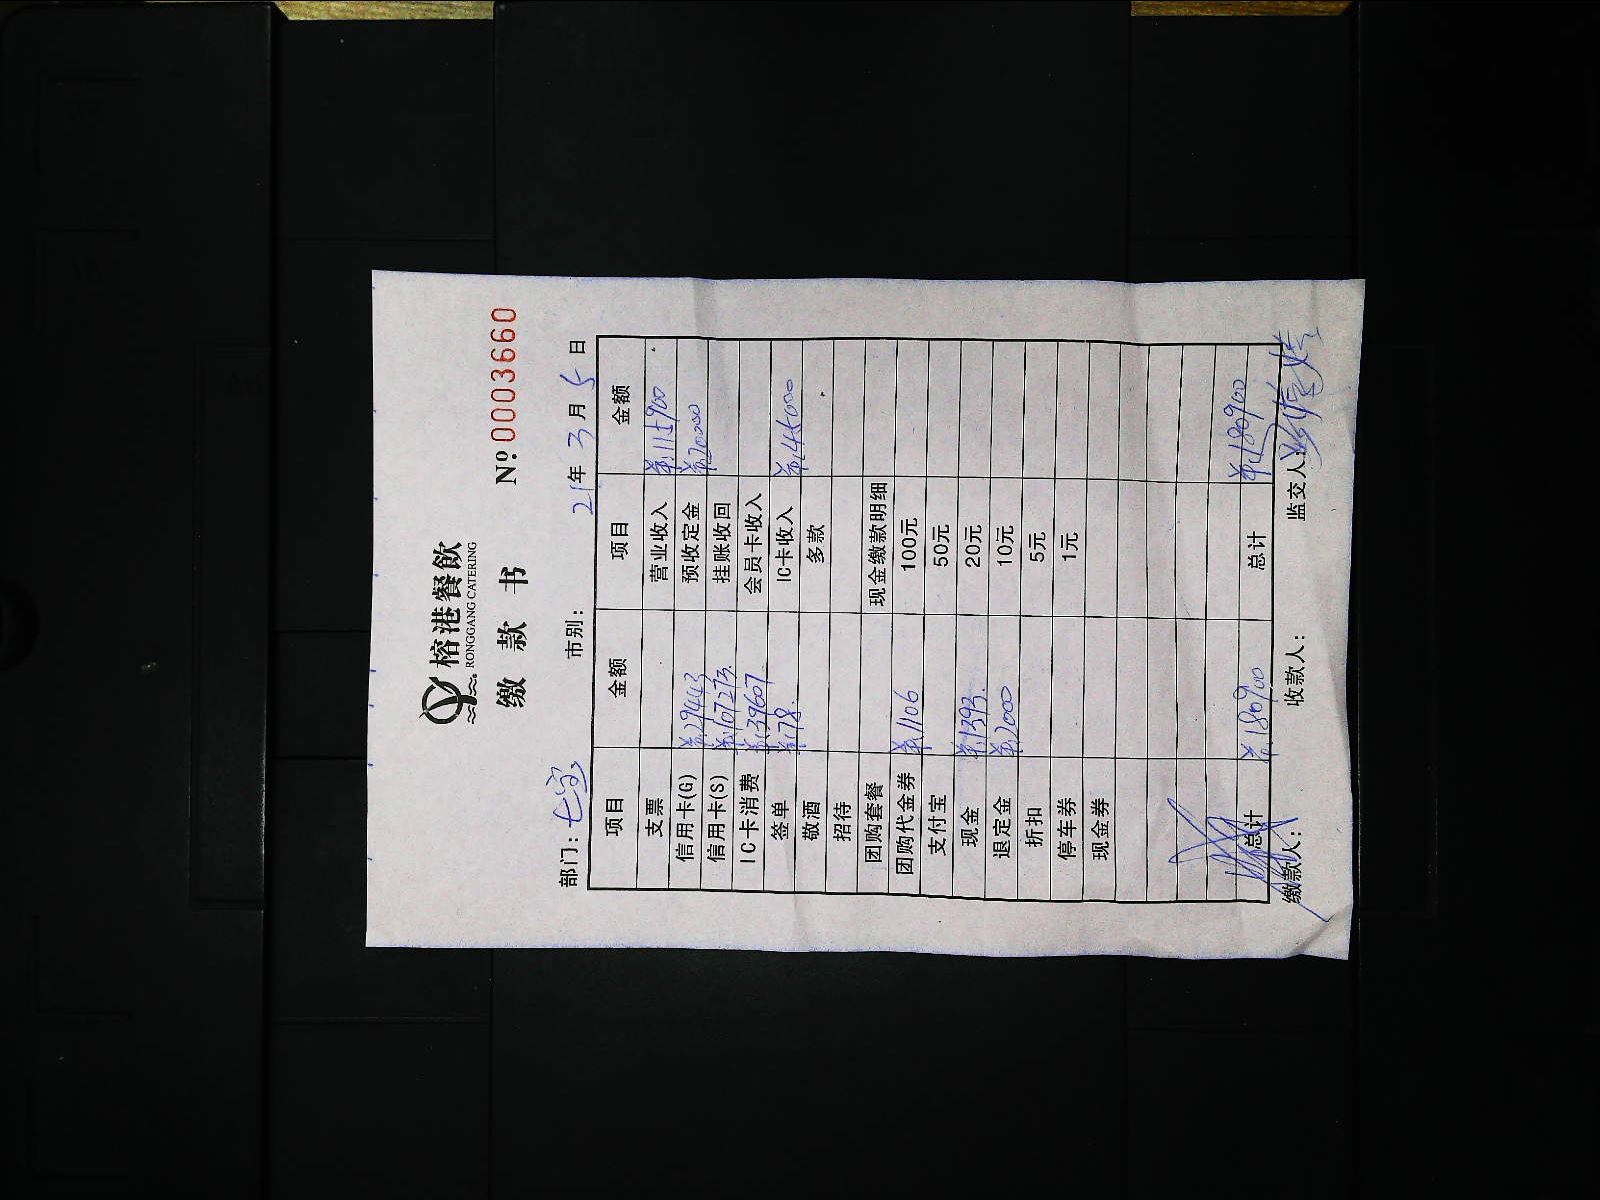 榕港餐飲
RONGGANG CATERING
缴 款 书 Nº:0003660
部门: 七宝 市别: 21年 3月 5日
项目 金额 项目 金额
支票 营业收入 ¥115900
信用卡(G) ¥29443 预收定金 ¥20000
信用卡(S) ¥107273. 挂账收回
IC卡消费 ¥39607 会员卡收入
签单 ¥78. IC卡收入 ¥45000
敬酒 多款
招待
团购套餐 现金缴款明细
团购代金券 ¥1106 100元
支付宝 50元
现金 ¥1393. 20元
退定金 ¥2000 10元
折扣 5元
停车券 1元
现金券
总计 ¥180900 总计 ¥180900
缴款人: 收款人: 监交人: